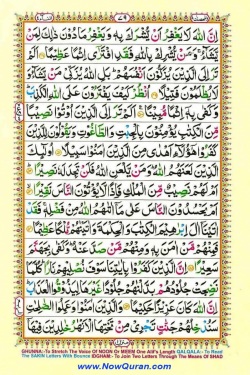 ٧٩
اِنَّ اللّٰهَ لَا يَغْفِرُ اَنْ يُّشْرَكَ بِهٖ وَيَغْفِرُ مَا دُوْنَ ذٰلِكَ لِمَنْ
يَّشَآءُ ۚ وَمَنْ يُّشْرِكْ بِاللّٰهِ فَقَدِ افْتَرٰٓى اِثْمًا عَظِيْمًا اَلَمْ
تَرَ اِلَى الَّذِيْنَ يُزَكُّوْنَ اَنْفُسَهُمْ ؕ بَلِ اللّٰهُ يُزَكِّيْ مَنْ يَّشَآءُ وَ
لَا يُظْلَمُوْنَ فَتِيْلًا اُنْظُرْ كَيْفَ يَفْتَرُوْنَ عَلَى اللّٰهِ الْكَذِبَ
وَكَفٰى بِهٖٓ اِثْمًا مُّبِيْنًا اَلَمْ تَرَ اِلَى الَّذِيْنَ اُوْتُوْا نَصِيْبًا
مِّنَ الْكِتٰبِ يُؤْمِنُوْنَ بِالْجِبْتِ وَالطَّاغُوْتِ وَيَقُوْلُوْنَ لِلَّذِيْنَ
كَفَرُوْا هٰٓؤُلَآءِ اَهْدٰى مِنَ الَّذِيْنَ اٰمَنُوْا سَبِيْلًا اُولٰٓئِكَ
الَّذِيْنَ لَعَنَهُمُ اللّٰهُ ؕ وَمَنْ يَّلْعَنِ اللّٰهُ فَلَنْ تَجِدَ لَهٗ نَصِيْرًا
اَمْ لَهُمْ نَصِيْبٌ مِّنَ الْمُلْكِ فَاِذًا لَّا يُؤْتُوْنَ النَّاسَ نَقِيْرًا
اَمْ يَحْسُدُوْنَ النَّاسَ عَلٰى مَآ اٰتٰىهُمُ اللّٰهُ مِنْ فَضْلِهٖ ۚ فَقَدْ
اٰتَيْنَآ اٰلَ اِبْرٰهِيْمَ الْكِتٰبَ وَالْحِكْمَةَ وَاٰتَيْنٰهُمْ مُّلْكًا عَظِيْمًا
فَمِنْهُمْ مَّنْ اٰمَنَ بِهٖ وَمِنْهُمْ مَّنْ صَدَّ عَنْهُ ؕ وَكَفٰى بِجَهَنَّمَ
سَعِيْرًا اِنَّ الَّذِيْنَ كَفَرُوْا بِاٰيٰتِنَا سَوْفَ نُصْلِيْهِمْ نَارًا ؕ كُلَّمَا
نَضِجَتْ جُلُوْدُهُمْ بَدَّلْنٰهُمْ جُلُوْدًا غَيْرَهَا لِيَذُوْقُوا الْعَذَابَ
اِنَّ اللّٰهَ كَانَ عَزِيْزًا حَكِيْمًا وَالَّذِيْنَ اٰمَنُوْا وَعَمِلُوا الصّٰلِحٰتِ
سَنُدْخِلُهُمْ جَنّٰتٍ تَجْرِيْ مِنْ تَحْتِهَا الْاَنْهٰرُ خٰلِدِيْنَ فِيْهَآ
GHUNNA:-To Stretch The Voice Of NOON Or MEEM One Alif's Length QALQALA:-To Read
The SAKIN Letters With Bounce IDGHAM:- To Join Two Letters Through The Means Of SHAD
www.NowQuran.com